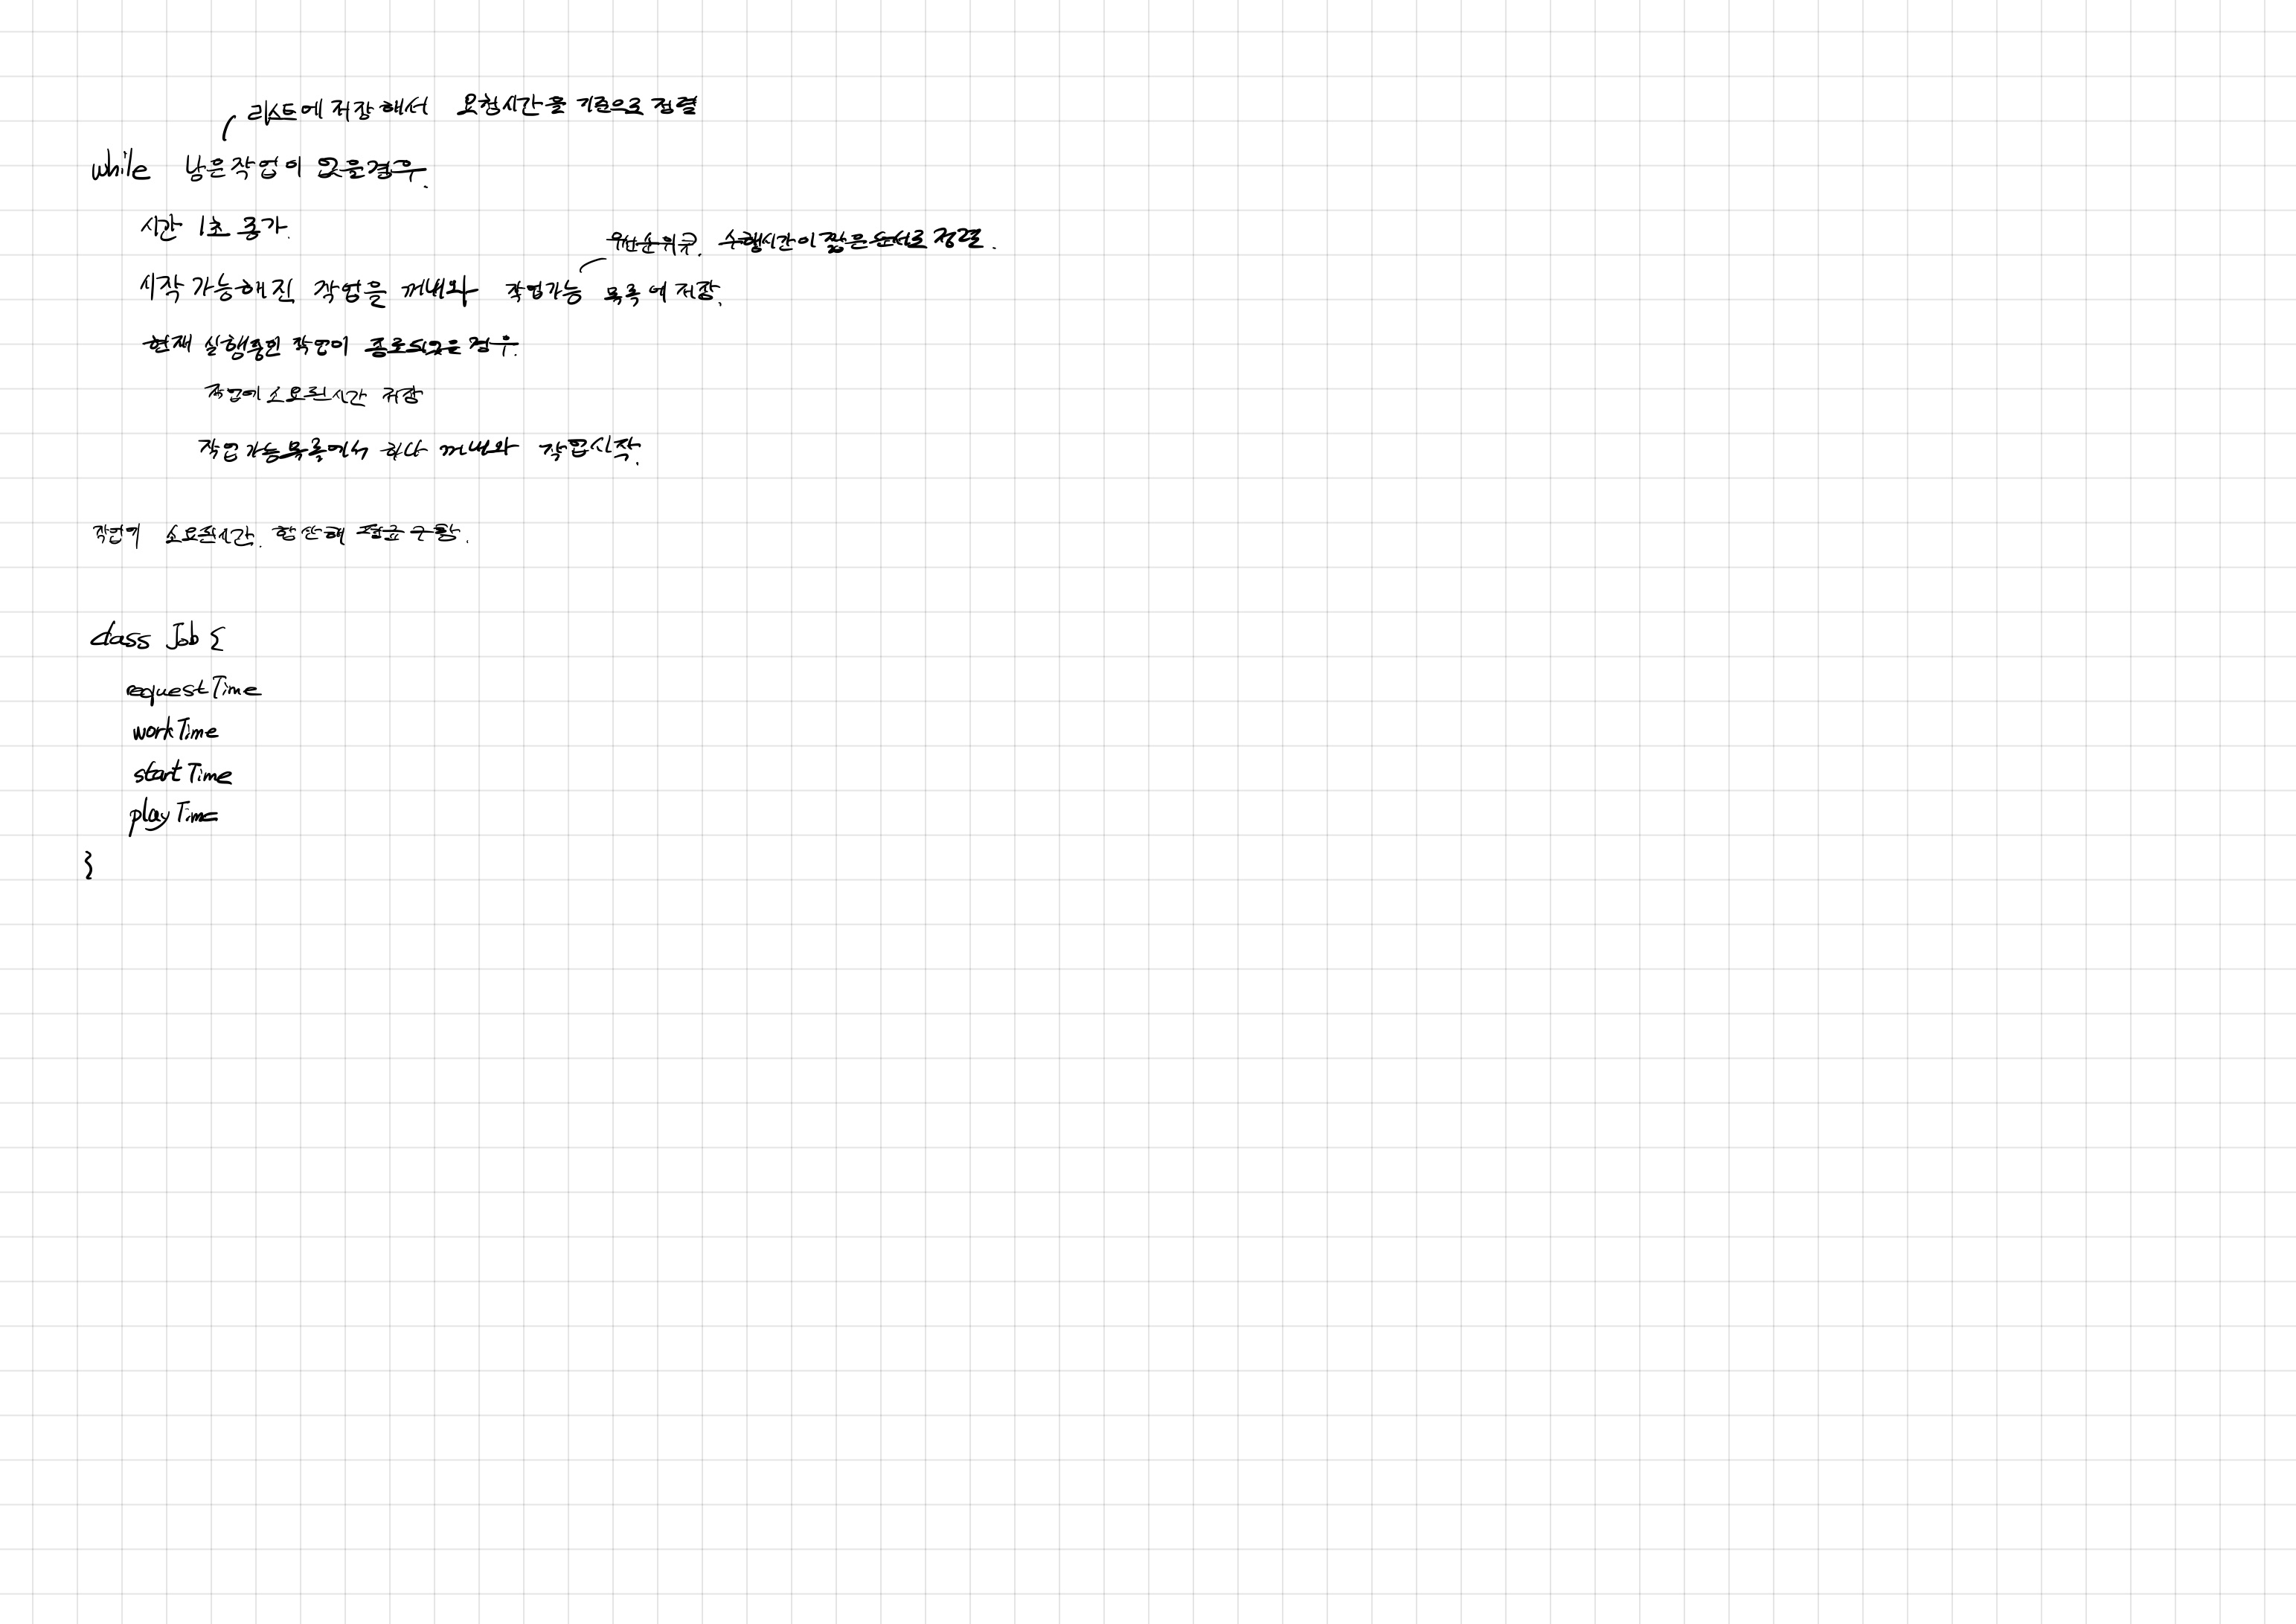 리스트에 저장해서 요청시간을 기준으로 정렬
while 남은작업이 없을경우.
시간 1초 증가.
우선순위큐. 수행시간이 짧은순서로 정렬.
시작 가능해진 작업을 꺼내와 작업가능 목록에 저장.
현재 실행중인 작업이 종료되었을 경우.
작업에 소요된시간 저장
작업가능목록에서 하나 꺼내와 작업시작.
작업에 소요된시간. 합산해 평균구함.
class Job {
requestTime
workTime
startTime
playTime
}